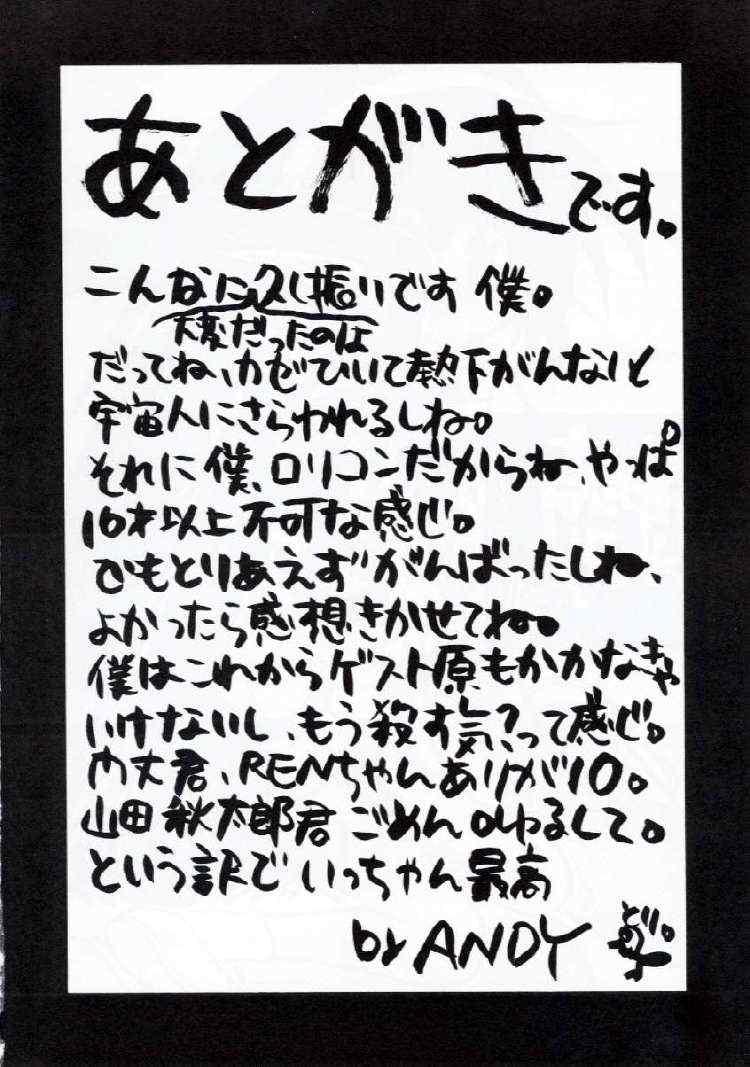 あとがきです。
こんなに久し振いです 僕。
大変だったのは
だってね、カゼひいて熱下がんないと
宇宙人にさらわれるしね。
それに僕、ロリコンだからね、やっぱ
16才以上不可な感じ。
でもとりあえずがんばったしね、
よかったら感想きかせてね。
僕はこれからゲスト原もかかなきゃ
いけないし、もう殺す気?って感じ。
内丈君、RENちゃんありが10。
山田秋太郎君 ごめん ゆるして。
という訳で いっちゃん最高
by ANDY